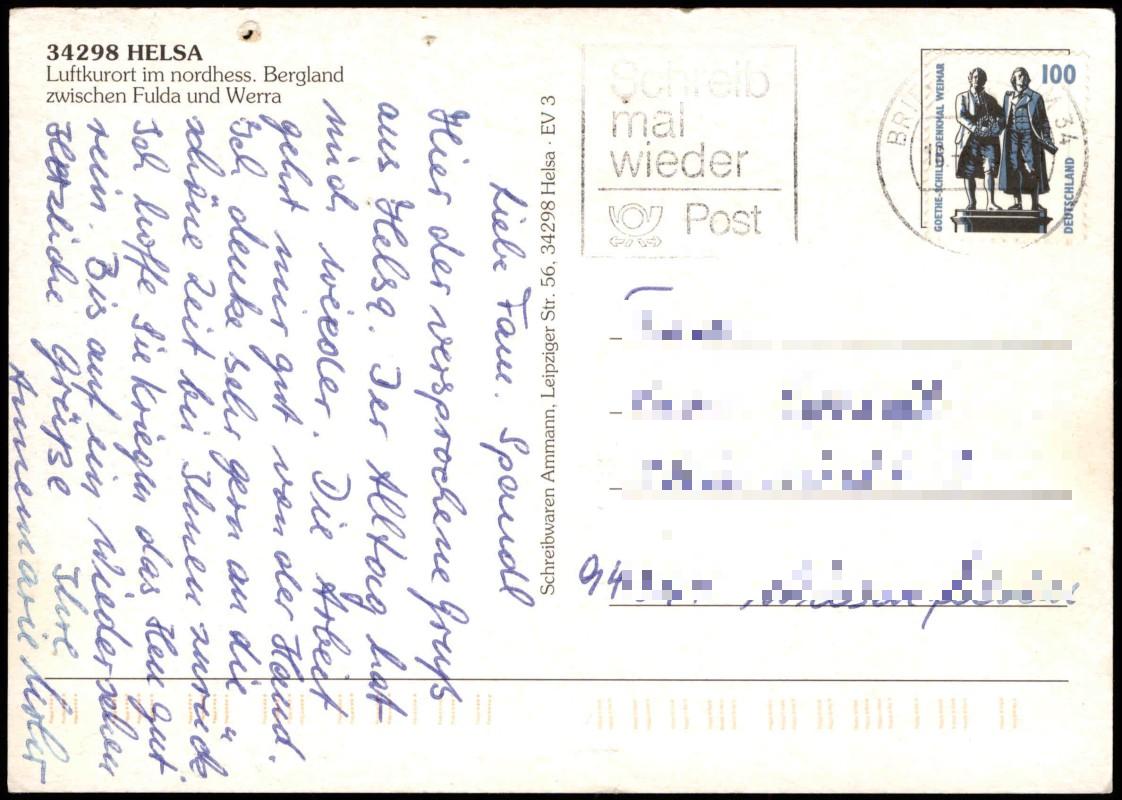 34298 HELSA
Luftkurort im nordhess. Bergland
zwischen Fulda und Werra
Liebe Fam. Spandl
Hier der versprochene Gruß
aus Helsa. Der Alltag hat
mich wieder. Die Arbeit
geht mir gut von der Hand.
Ich denke sehr gern an die
schöne Zeit bei Ihnen zurück
Ich hoffe Sie kriegen das Heu gut
rein. Bis auf ein Wiedersehen
Herzliche Grüße Ihre
Annemarie
Schreibwaren Ammann, Leipziger Str. 56, 34298 Helsa · EV 3
Schreib
mal
wieder
Post
100
GOETHE-SCHILLER-DENKMAL WEIMAR
DEUTSCHLAND
34
94